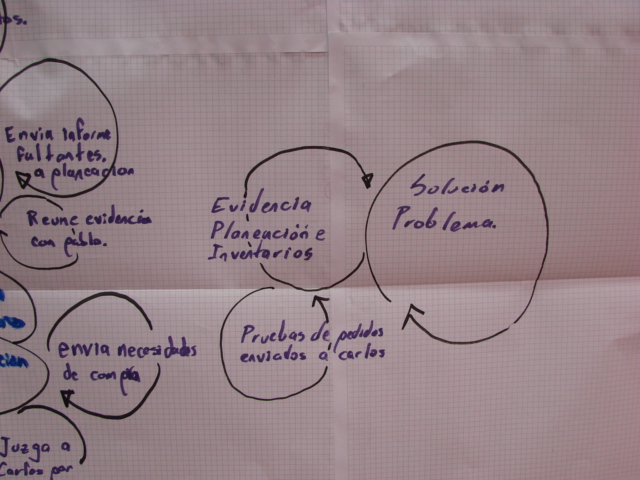 os.
Envia informe
faltantes.
a planeacion
Reune evidencia
con pablo.
envia necesidades
de compra
Juzga a
Carlos por
Evidencia
Planeación e
Inventarios
Pruebas de pedidos
enviados a carlos
Solución
Problema.